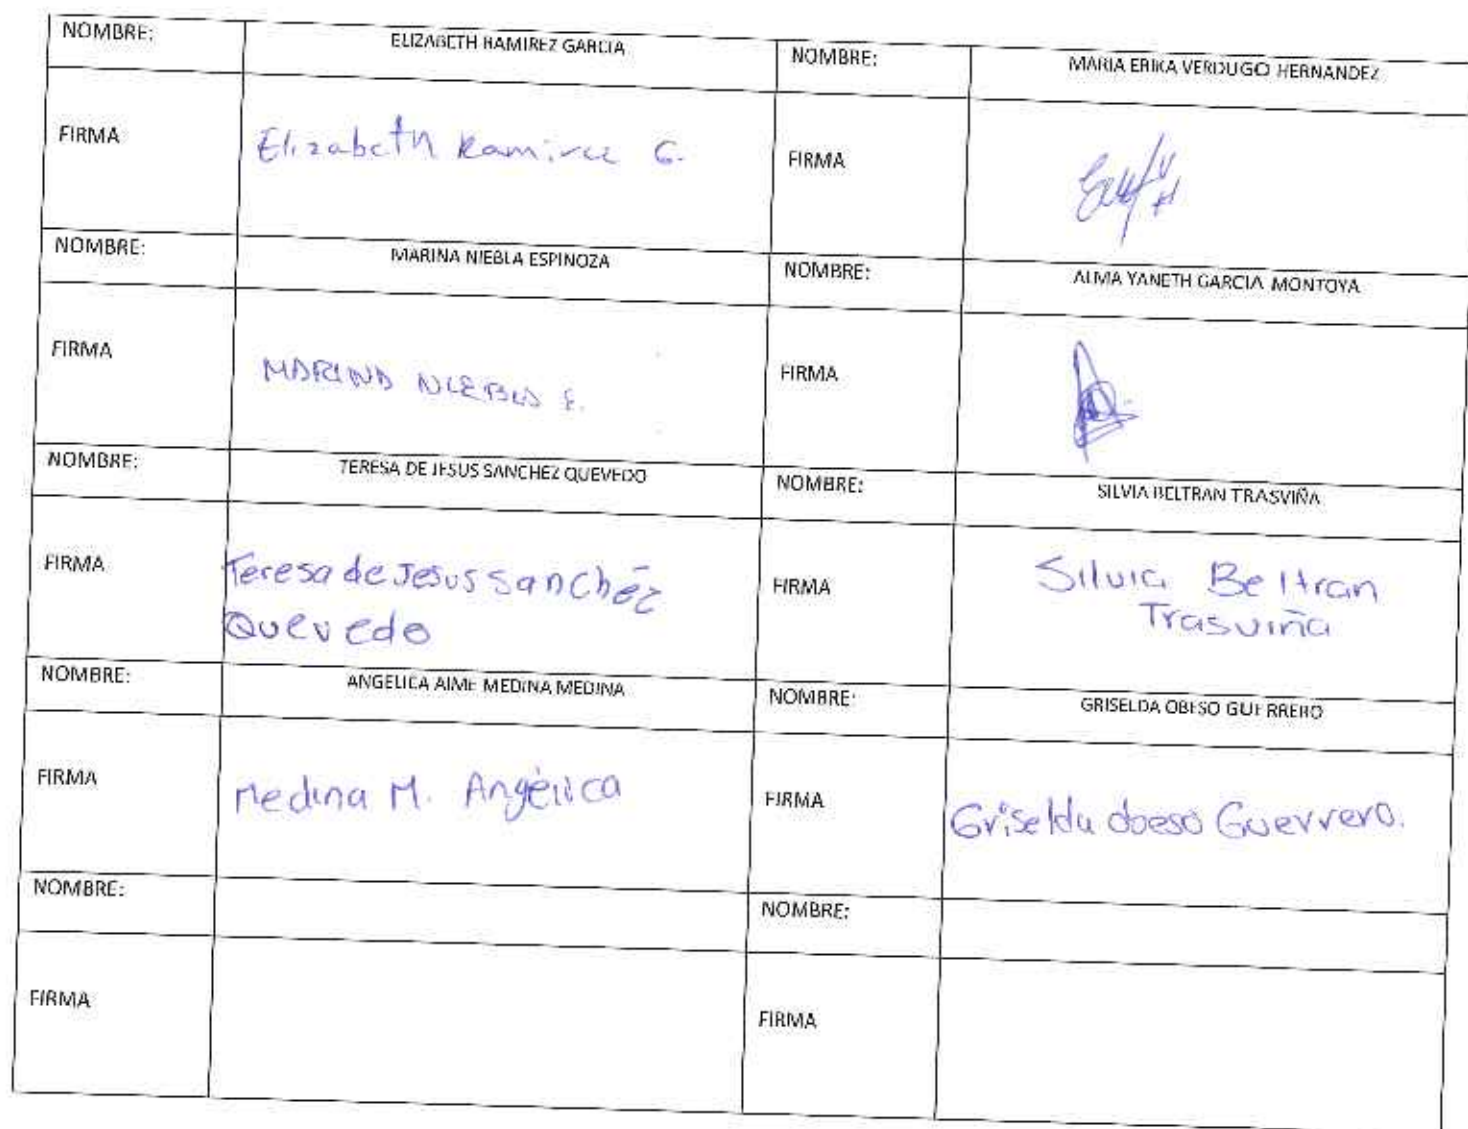 NOMBRE: ELIZABETH RAMIREZ GARCIA NOMBRE: MARIA ERIKA VERDUGO HERNANDEZ
FIRMA Elizabeth Ramirez G. FIRMA
NOMBRE: MARINA NIEBLA ESPINOZA NOMBRE: ALMA YANETH GARCIA MONTOYA
FIRMA MARINA NIEBLA E. FIRMA
NOMBRE: TERESA DE JESUS SANCHEZ QUEVEDO NOMBRE: SILVIA BELTRAN TRASVIÑA
FIRMA Teresa de Jesus Sanchéz FIRMA Silvia Beltran
Quevedo Trasviña
NOMBRE: ANGELICA AIME MEDINA MEDINA NOMBRE: GRISELDA OBESO GUERRERO
FIRMA Medina M. Angélica FIRMA Griselda obeso Guerrero.
NOMBRE: NOMBRE:
FIRMA FIRMA